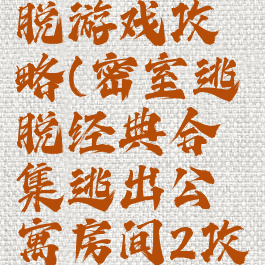 脱游戏攻
略(密室逃
脱经典合
集逃出公
寓房间2攻